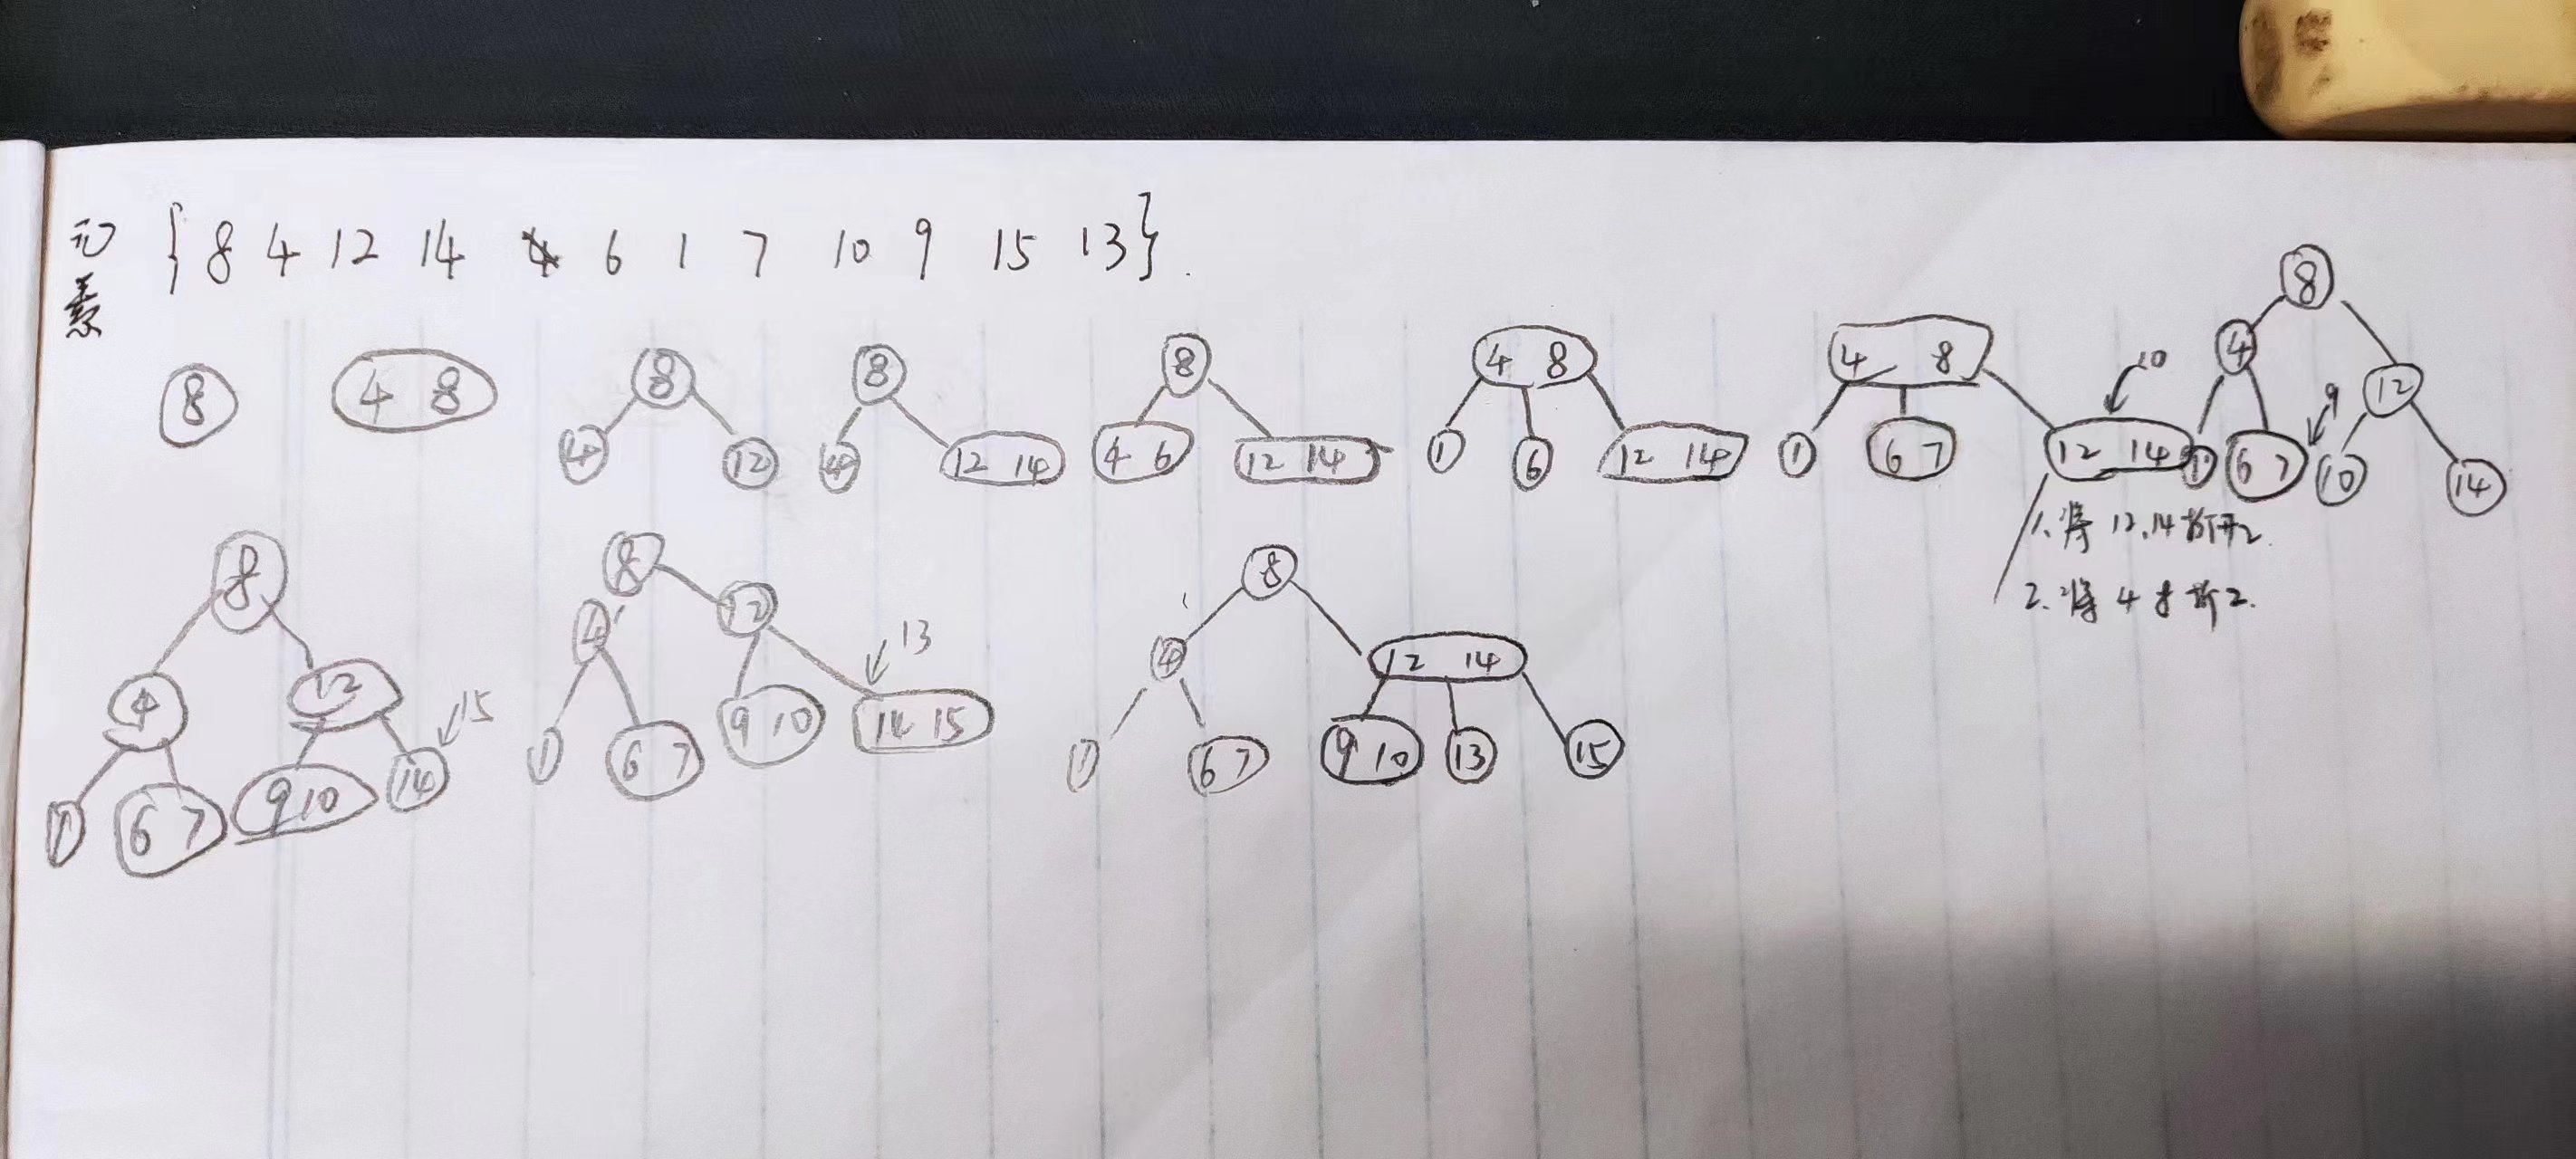 元素 { 8 4 12 14 6 1 7 10 9 15 13 } .
8
4 8
8
4 12
8
4 12 14
8
4 6 12 14
4 8
1 6 12 14
4 8
10
1 6 7 12 14
8
4 12
9
1 6 7 10 14
1. 将 12.14 拆开
2. 将 4 8 拆
8
4 12
15
1 6 7 9 10 14
8
4 12
13
1 6 7 9 10 14 15
8
4 12 14
1 6 7 9 10 13 15